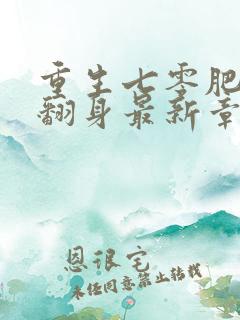 重生七零肥
翻身最新章
恩很宅
未经同意禁止转载